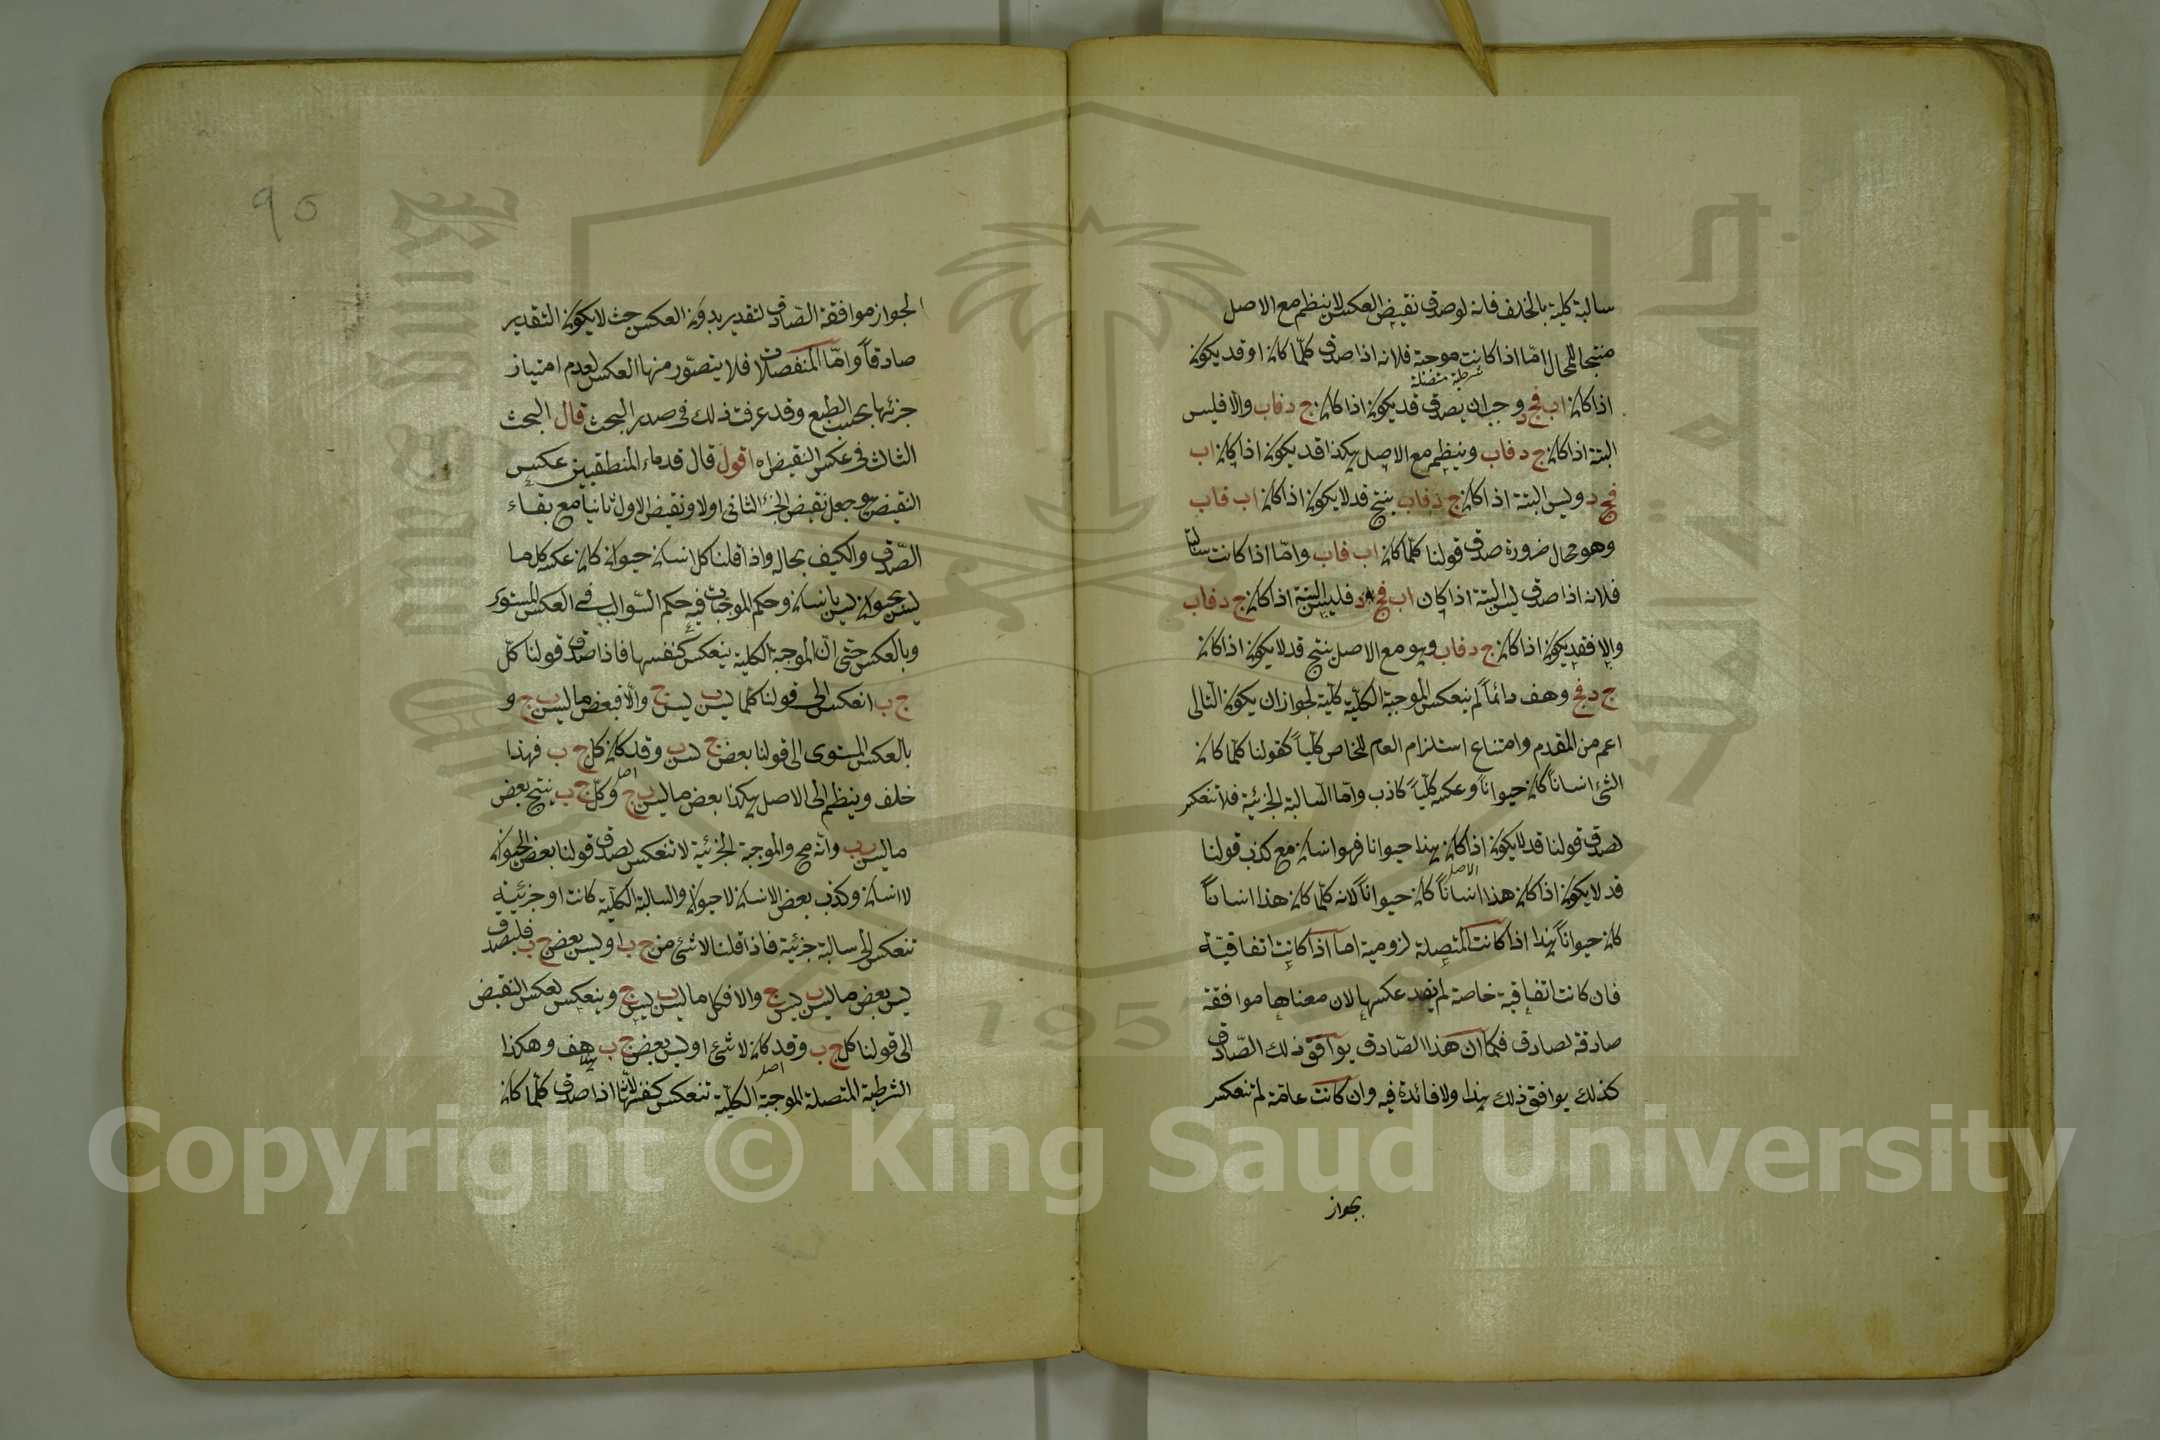 سالبة كلية بالخلف فانه لو صدق نقيض العكس لانتظم مع الاصل
منتجا للمحال اما اذا كانت موجبة فلانه اذا صدق كلما كان او قد يكون
شرطية متصلة
اذا كان اب فج د وجب ان يصدق قد يكون اذا كان ج د فاب والا فليس
البتة اذا كان ج د فاب وينتظم مع الاصل هكذا قد يكون اذا كان اب
فج د وليس البتة اذا كان ج د فاب ينتج قد لا يكون اذا كان اب فاب
وهو محال ضرورة صدق قولنا كلما كان اب فاب واما اذا كانت سالبة
فلانه اذا صدق ليس البتة اذا كان اب فج د فليس البتة اذا كان ج د فاب
والا فقد يكون اذا كان ج د فاب وهو مع الاصل ينتج قد لا يكون اذا كان
ج د فج د هف وانما لم ينعكس الموجبة الكلية كلية لجواز ان يكون التالى
اعم من المقدم وامتناع استلزام العام للخاص كلياً كقولنا كلما كان
الشئ انساناً كان حيواناً وعكسه كلياً كاذب واما السالبة الجزئية فلا تنعكس
لصدق قولنا قد لا يكون اذا كان هذا حيوانا فهو انسان مع كذب قولنا
الاصل
قد لا يكون اذا كان هذا انساناً كان حيواناً لانه كلما كان هذا انساناً
كان حيواناً هذا اذا كانت المتصلة لزومية اما اذا كانت اتفاقيّة
فان كانت اتفاقية خاصة لم يفد عكسها لان معناها موافقة
صادقة لصادق فكما ان هذا الصادق يوافق ذلك الصّادق
كذلك يوافق ذلك هذا ولا فائدة فيه وان كانت عامّة لم تنعكس
لجواز
لجواز موافقة الصّادق لتقدير بدون العكس حيث لا يكون التقدير
صادقاً وامّا المنفصلات فلا يتصوّر منها العكس لعدم امتياز
جزئها بحسب الطبع وقد عرفت ذلك فى صدر البحث قال البحث
الثالث فى عكس النقيض اه اقول قال قدماء المنطقيين عكس
النقيض هو جعل نقيض الجزء الثانى اولا ونقيض الاول ثانيا مع بقاء
الصّدق والكيف بحاله واذا قلنا كل انسان حيوان كان عكسه كل ما
ليس بحيوان ليس بانسان وحكم الموجبات فيه حكم السّوالب فى العكس المستوى
وبالعكس حتى انّ الموجبة الكلية ينعكس كنفسها فاذا صدق قولنا كلّ
ج ب انعكس الى قولنا كلما ليس ب ليس ج والّا فبعض ما ليس ب ج و
بالعكس المستوى الى قولنا بعض ج ليس ب وقد كان كل ج ب فهذا
اصل
خلف وينظم الى الاصل هكذا بعض ما ليس ب ج وكلّ ج ب ينتج بعض
ما ليس ب ب وانّه مح والموجبة الجزئية لا تنعكس لصدق قولنا بعض الحيوان
لا انسان وكذب بعض الانسان لا حيوان والسالبة الكلية كانت او جزئيّة
تنعكس الى سالبة جزئية فاذا قلنا لا شئ من ج ب او ليس بعض ج ب فليصدق
ليس بعض ما ليس ب ليس ج والا فكل ما ليس ب ليس ج وينعكس بعكس النقيض
الى قولنا كل ج ب وقد كان لا شئ او ليس بعض ج ب هف وهكذا
اصل
الشرطية المتصلة الموجبة الكلّية تنعكس كنفسها لانّها اذا صدق كلّما كان